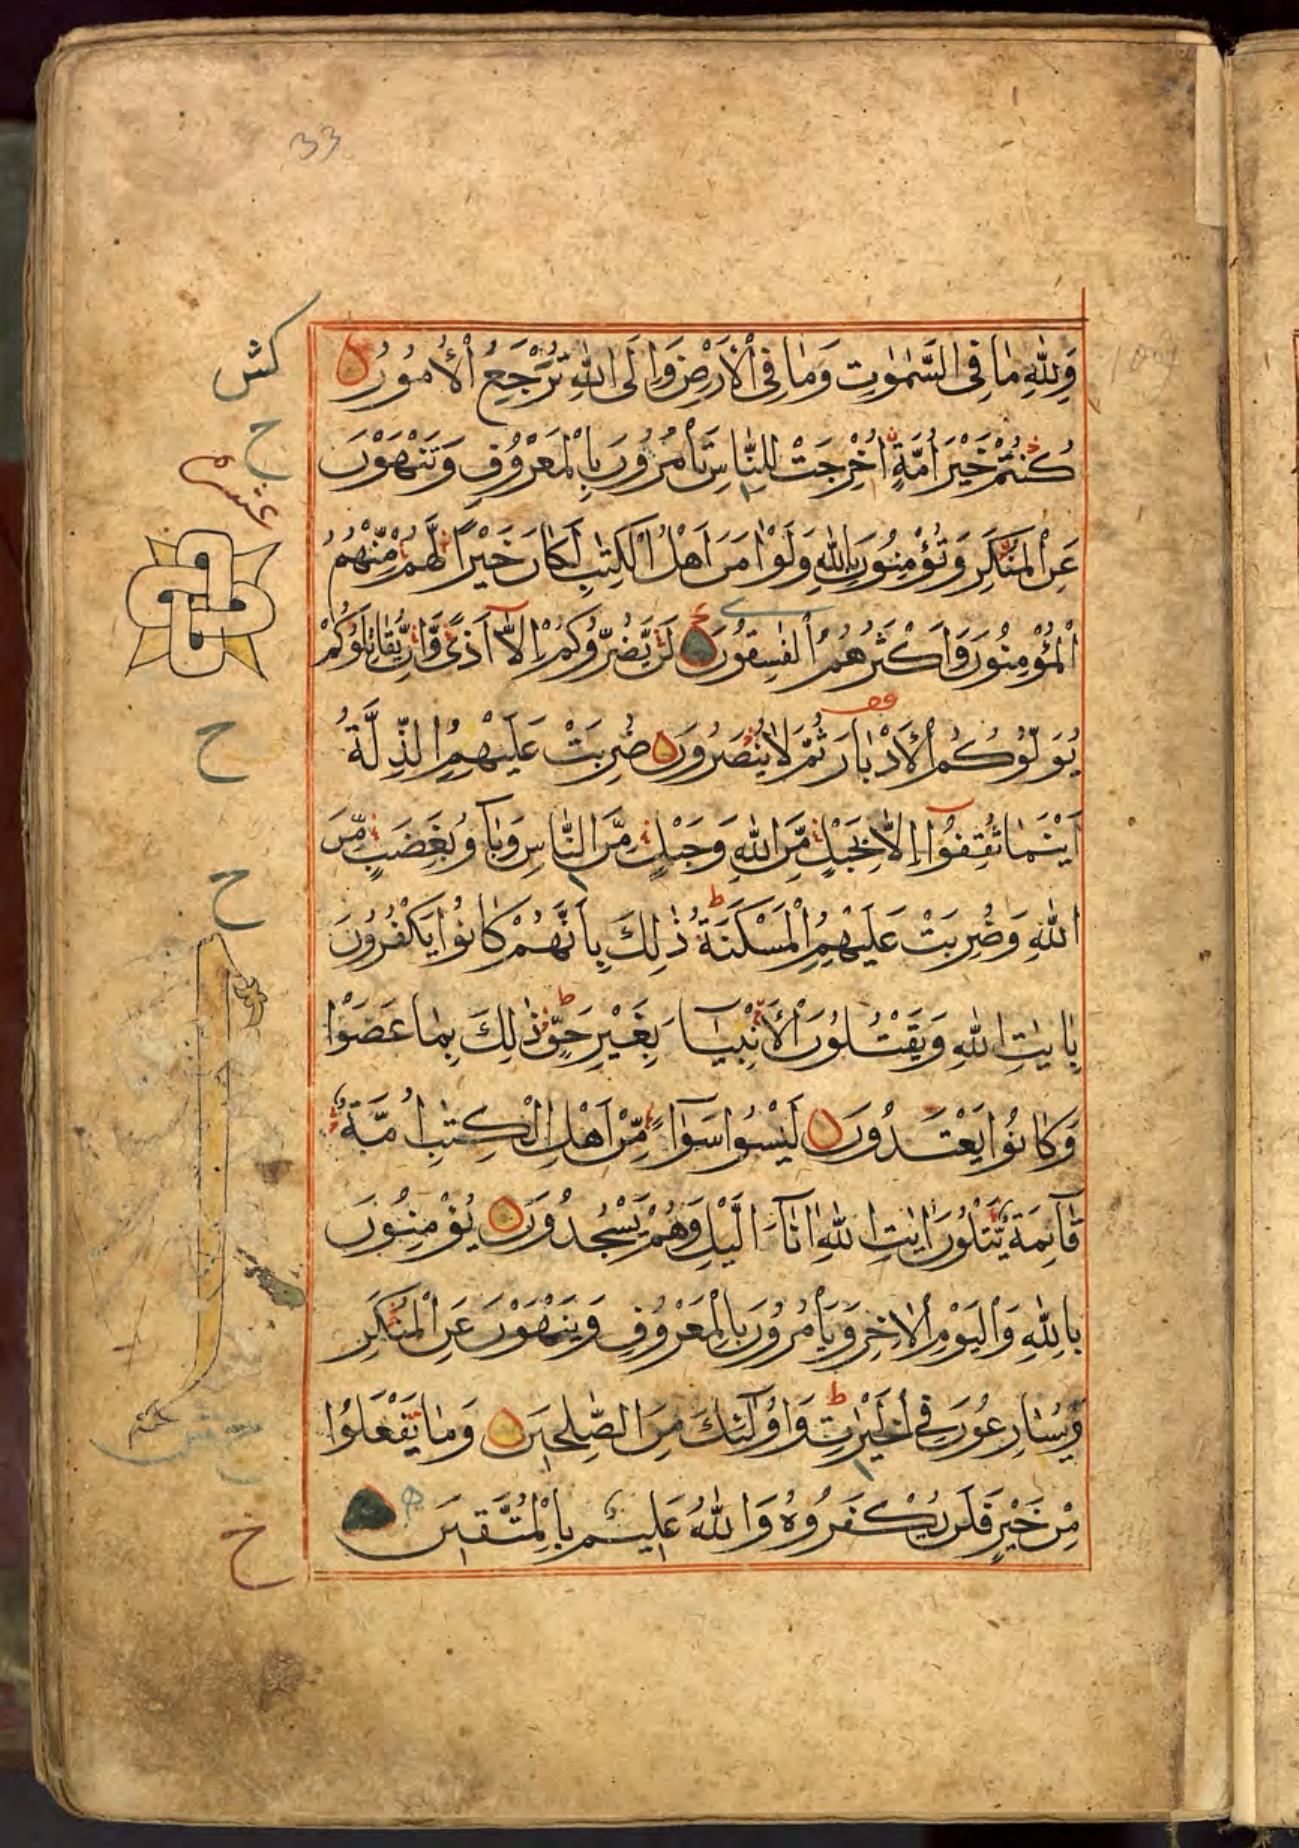 33
وَلِلّٰهِ مَا فِى السَّمٰوٰتِ وَمَا فِى الْاَرْضِ وَاِلَى اللّٰهِ تُرْجَعُ الْاُمُوْرُ
كُنْتُمْ خَيْرَ اُمَّةٍ اُخْرِجَتْ لِلنَّاسِ تَاْمُرُوْنَ بِالْمَعْرُوْفِ وَتَنْهَوْنَ
عَنِ الْمُنْكَرِ وَتُؤْمِنُوْنَ بِاللّٰهِ وَلَوْ اٰمَنَ اَهْلُ الْكِتٰبِ لَكَانَ خَيْرًا لَّهُمْ مِنْهُمُ
الْمُؤْمِنُوْنَ وَاَكْثَرُهُمُ الْفٰسِقُوْنَ لَنْ يَّضُرُّوْكُمْ اِلَّا اَذًى وَّاِنْ يُّقَاتِلُوْكُمْ
يُوَلُّوْكُمُ الْاَدْبَارَ ثُمَّ لَا يُنْصَرُوْنَ ضُرِبَتْ عَلَيْهِمُ الذِّلَّةُ
اَيْنَمَا ثُقِفُوْٓا اِلَّا بِحَبْلٍ مِّنَ اللّٰهِ وَحَبْلٍ مِّنَ النَّاسِ وَبَآؤُ بِغَضَبٍ مِّنَ
اللّٰهِ وَضُرِبَتْ عَلَيْهِمُ الْمَسْكَنَةُ ذٰلِكَ بِاَنَّهُمْ كَانُوْا يَكْفُرُوْنَ
بِاٰيٰتِ اللّٰهِ وَيَقْتُلُوْنَ الْاَنْبِيَآءَ بِغَيْرِ حَقٍّ ذٰلِكَ بِمَا عَصَوْا
وَكَانُوْا يَعْتَدُوْنَ لَيْسُوْا سَوَآءً مِّنْ اَهْلِ الْكِتٰبِ اُمَّةٌ
قَآئِمَةٌ يَّتْلُوْنَ اٰيٰتِ اللّٰهِ اٰنَآءَ الَّيْلِ وَهُمْ يَسْجُدُوْنَ يُؤْمِنُوْنَ
بِاللّٰهِ وَالْيَوْمِ الْاٰخِرِ وَيَاْمُرُوْنَ بِالْمَعْرُوْفِ وَيَنْهَوْنَ عَنِ الْمُنْكَرِ
وَيُسَارِعُوْنَ فِى الْخَيْرٰتِ وَاُولٰٓئِكَ مِنَ الصّٰلِحِيْنَ وَمَا تَفْعَلُوْا
مِنْ خَيْرٍ فَلَنْ يُكْفَرُوْهُ وَاللّٰهُ عَلِيْمٌ بِالْمُتَّقِيْنَ
ح
عشر
ح
ح
ح